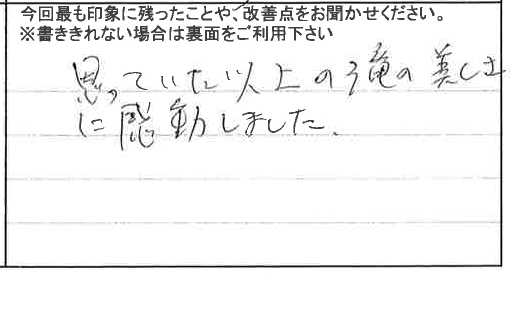 今回最も印象に残ったことや、改善点をお聞かせください。
※書ききれない場合は裏面をご利用下さい
思っていた以上の滝の美しさ
に感動しました。